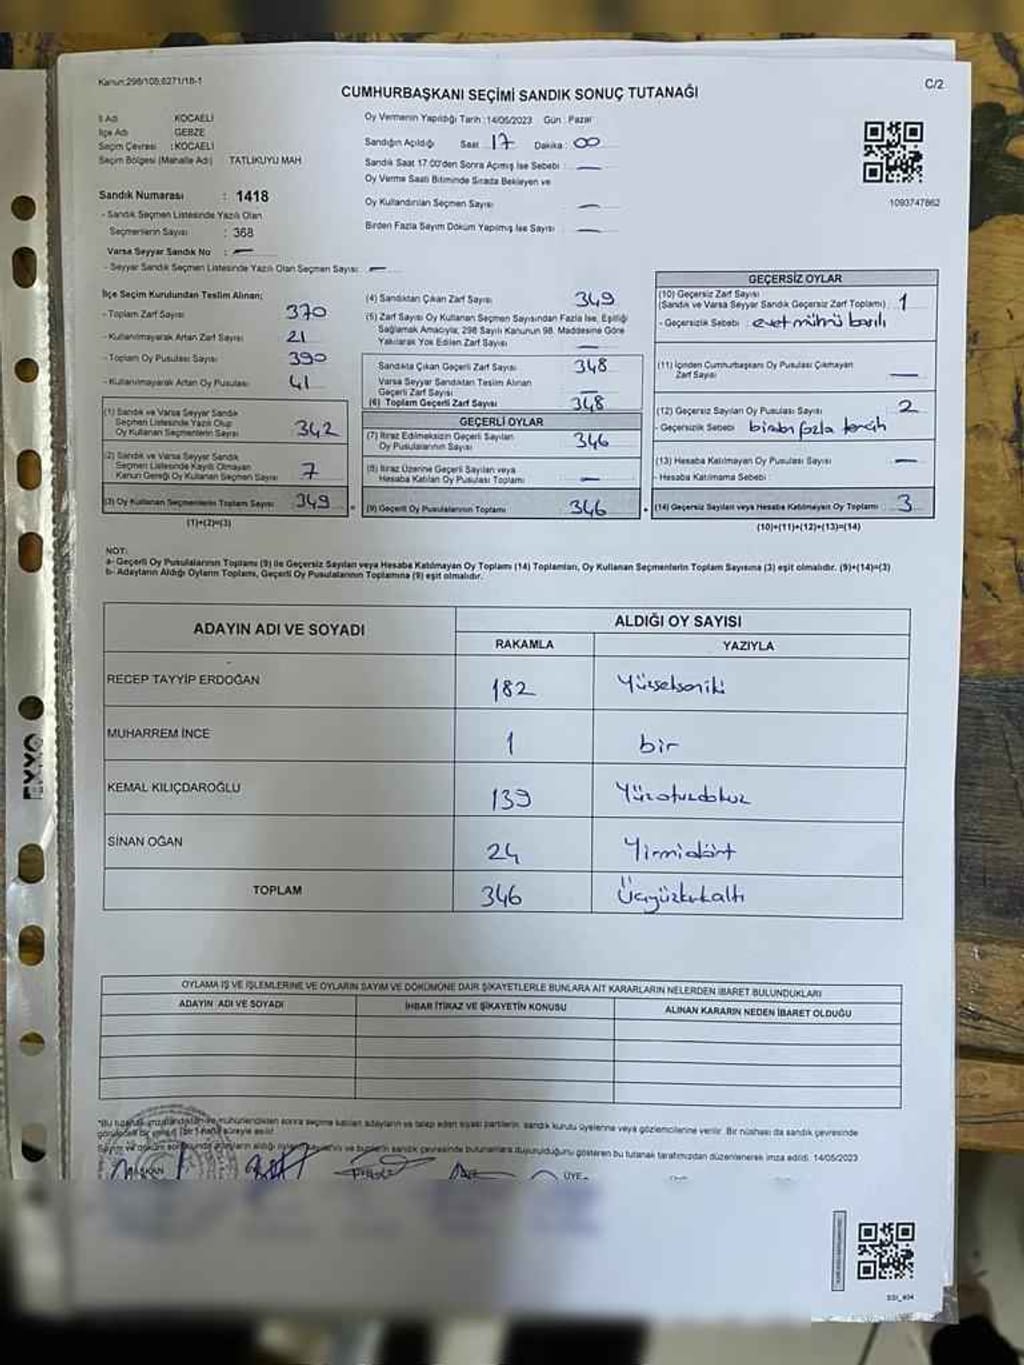 Kanun:298/105;6271/18-1
C/2
CUMHURBAŞKANI SEÇİMİ SANDIK SONUÇ TUTANAĞI
İl Adı KOCAELİ
İlçe Adı GEBZE
Seçim Çevresi : KOCAELİ
Seçim Bölgesi (Mahalle Adı) TATLIKUYU MAH
Sandık Numarası : 1418
- Sandık Seçmen Listesinde Yazılı Olan
Seçmenlerin Sayısı : 368
Varsa Seyyar Sandık No : —
- Seyyar Sandık Seçmen Listesinde Yazılı Olan Seçmen Sayısı: —
Oy Vermenin Yapıldığı Tarih :14/05/2023 Gün : Pazar
Sandığın Açıldığı Saat : 17 Dakika : 00
Sandık Saat 17:00'den Sonra Açılmış İse Sebebi : —
Oy Verme Saati Bitiminde Sırada Bekleyen ve
Oy Kullandırılan Seçmen Sayısı : —
Birden Fazla Sayım Döküm Yapılmış İse Sayısı : —
1093747862
İlçe Seçim Kurulundan Teslim Alınan;
- Toplam Zarf Sayısı : 370
- Kullanılmayarak Artan Zarf Sayısı : 21
- Toplam Oy Pusulası Sayısı : 390
- Kullanılmayarak Artan Oy Pusulası : 41
(1) Sandık ve Varsa Seyyar Sandık
Seçmen Listesinde Yazılı Olup
Oy Kullanan Seçmenlerin Sayısı : 342
(2) Sandık ve Varsa Seyyar Sandık
Seçmen Listesinde Kayıtlı Olmayan
Kanun Gereği Oy Kullanan Seçmen Sayısı : 7
(3) Oy Kullanan Seçmenlerin Toplam Sayısı : 349
(1)+(2)=(3)
(4) Sandıktan Çıkan Zarf Sayısı : 349
(5) Zarf Sayısı Oy Kullanan Seçmen Sayısından Fazla İse, Eşitliği
Sağlamak Amacıyla; 298 Sayılı Kanunun 98. Maddesine Göre
Yakılarak Yok Edilen Zarf Sayısı : —
Sandıkta Çıkan Geçerli Zarf Sayısı : 348
Varsa Seyyar Sandıktan Teslim Alınan
Geçerli Zarf Sayısı : —
(6) Toplam Geçerli Zarf Sayısı : 348
GEÇERLİ OYLAR
(7) İtiraz Edilmeksizin Geçerli Sayılan
Oy Pusulalarının Sayısı : 346
(8) İtiraz Üzerine Geçerli Sayılan veya
Hesaba Katılan Oy Pusulası Toplamı : —
(9) Geçerli Oy Pusulalarının Toplamı : 346
GEÇERSİZ OYLAR
(10) Geçersiz Zarf Sayısı
(Sandık ve Varsa Seyyar Sandık Geçersiz Zarf Toplamı) : 1
- Geçersizlik Sebebi : evet mührü basılı
(11) İçinden Cumhurbaşkanı Oy Pusulası Çıkmayan
Zarf Sayısı : —
(12) Geçersiz Sayılan Oy Pusulası Sayısı : 2
- Geçersizlik Sebebi : birden fazla tercih
(13) Hesaba Katılmayan Oy Pusulası Sayısı : —
- Hesaba Katılmama Sebebi :
(14) Geçersiz Sayılan veya Hesaba Katılmayan Oy Toplamı : 3
(10)+(11)+(12)+(13)=(14)
NOT:
a- Geçerli Oy Pusulalarının Toplamı (9) ile Geçersiz Sayılan veya Hesaba Katılmayan Oy Toplamı (14) Toplamları, Oy Kullanan Seçmenlerin Toplam Sayısına (3) eşit olmalıdır. (9)+(14)=(3)
b- Adayların Aldığı Oyların Toplamı, Geçerli Oy Pusulalarının Toplamına (9) eşit olmalıdır.
ADAYIN ADI VE SOYADI
ALDIĞI OY SAYISI
RAKAMLA YAZIYLA
RECEP TAYYİP ERDOĞAN 182 Yüzsekseniki
MUHARREM İNCE 1 bir
KEMAL KILIÇDAROĞLU 139 Yüzotuzdokuz
SİNAN OĞAN 24 Yirmidört
TOPLAM 346 Üçyüzkırkaltı
OYLAMA İŞ VE İŞLEMLERİNE VE OYLARIN SAYIM VE DÖKÜMÜNE DAİR ŞİKAYETLERLE BUNLARA AİT KARARLARIN NELERDEN İBARET BULUNDUKLARI
ADAYIN ADI VE SOYADI
İHBAR İTİRAZ VE ŞİKAYETİN KONUSU
ALINAN KARARIN NEDEN İBARET OLDUĞU
*Bu tutanak imzalandıktan ve mühürlendikten sonra seçime katılan adayların ve talep eden siyasi partilerin, sandık kurulu üyelerine veya gözlemcilerine verilir. Bir nüshası da sandık çevresinde
görülecek bir yere bir hafta süreyle asılır.
bulunanlara duyurulduğunu gösteren bu tutanak tarafımızdan düzenlenerek imza edildi. 14/05/2023
BAŞKAN
ÜYE
EXXO